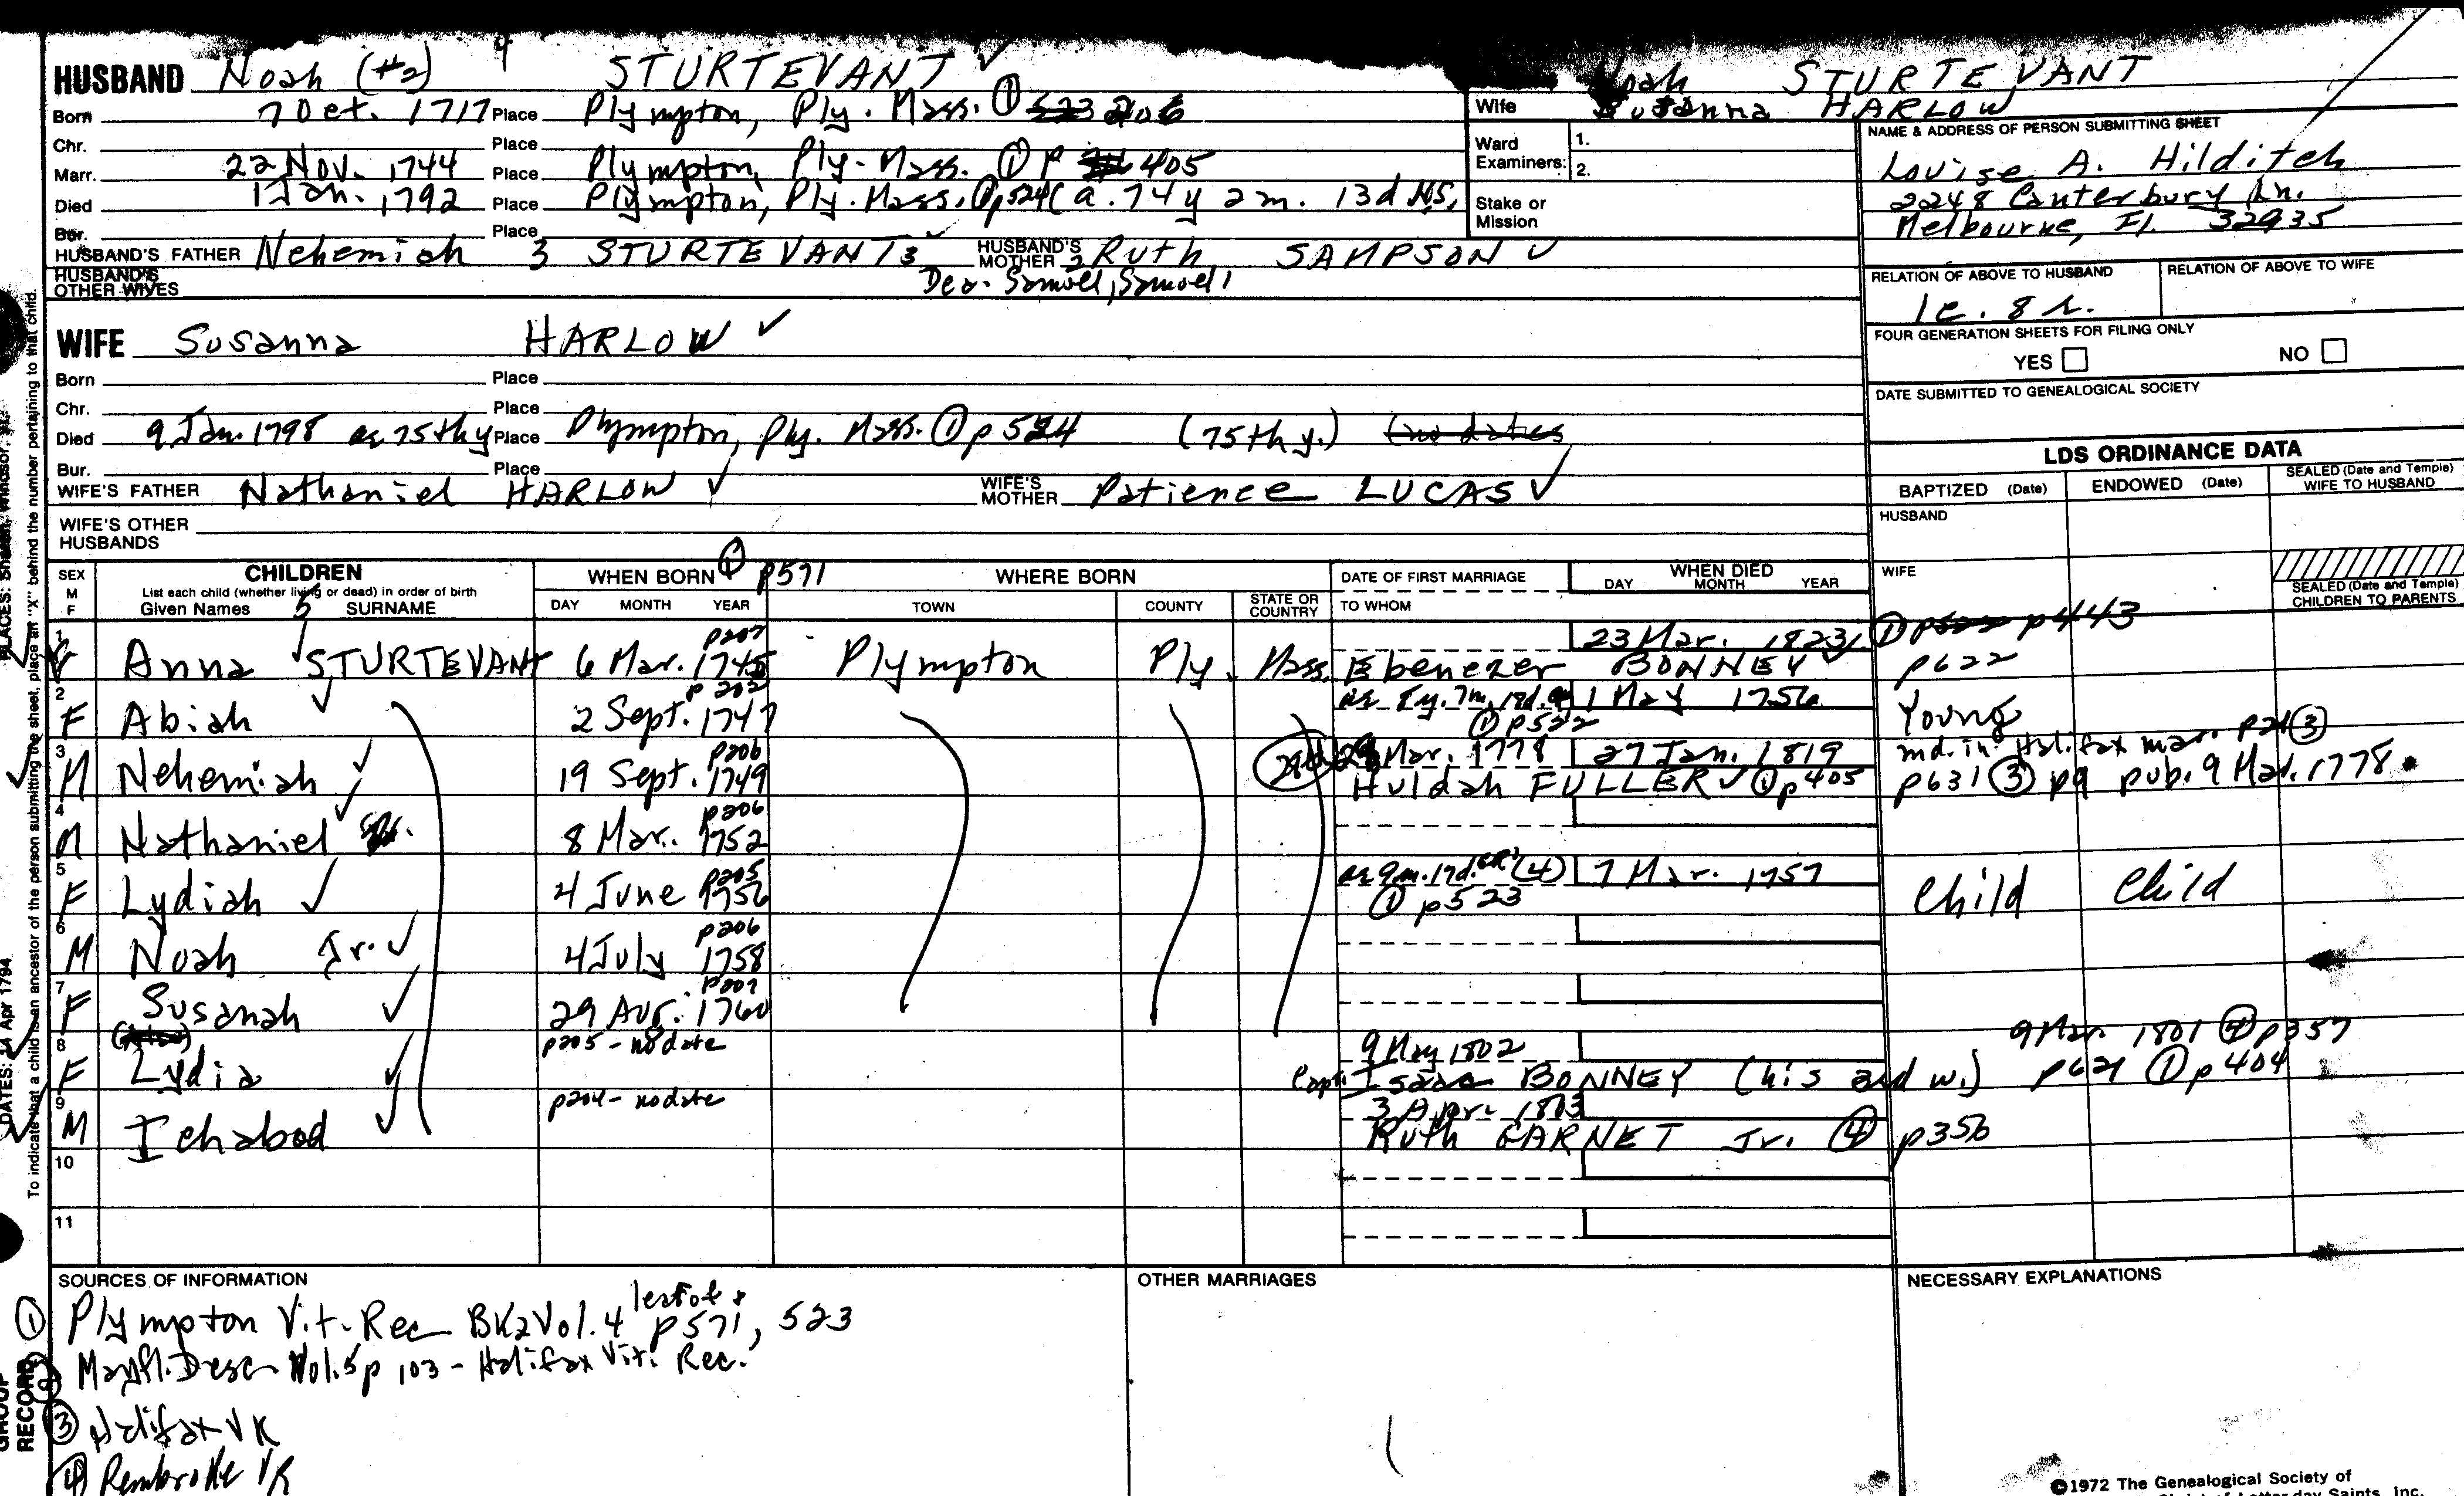 HUSBAND Noah (#2) 4 STURTEVANT ✓
Born 7 Oct. 1717 Place Plympton, Ply. Mass. ① 206
Chr. Place
Marr. 22 Nov. 1744 Place Plympton, Ply. Mass. ① p 405
Died 1 Jan. 1792 Place Plympton, Ply. Mass. ① p524 (a. 74 y 2 m. 13 d N.S.
Bur. Place
HUSBAND'S FATHER Nehemiah 3 STURTEVANT 3 ✓ HUSBAND'S MOTHER Ruth SAMPSON ✓
HUSBAND'S OTHER WIVES Dea. Samuel 2, Samuel 1
WIFE Susanna HARLOW ✓
Born Place
Chr. Place
Died 9 Jan. 1798 ae 75th y Place Plympton, Ply. Mass. ① p 524 (75th y.) (no dates
Bur. Place
WIFE'S FATHER Nathaniel HARLOW ✓ WIFE'S MOTHER Patience LUCAS ✓
WIFE'S OTHER HUSBANDS
Noah STURTEVANT
Wife Susanna HARLOW
Ward Examiners: 1.
2.
Stake or Mission
NAME & ADDRESS OF PERSON SUBMITTING SHEET
Louise A. Hilditch
2248 Canterbury Ln.
Melbourne, Fl. 32935
RELATION OF ABOVE TO HUSBAND RELATION OF ABOVE TO WIFE
1c. 8 r.
FOUR GENERATION SHEETS FOR FILING ONLY
YES NO
DATE SUBMITTED TO GENEALOGICAL SOCIETY
LDS ORDINANCE DATA
BAPTIZED (Date) ENDOWED (Date) SEALED (Date and Temple) WIFE TO HUSBAND
HUSBAND
WIFE
SEALED (Date and Temple) CHILDREN TO PARENTS
SEX M F
CHILDREN
List each child (whether living or dead) in order of birth
Given Names 5 SURNAME
WHEN BORN ① p571
DAY MONTH YEAR
WHERE BORN
TOWN COUNTY STATE OR COUNTRY
DATE OF FIRST MARRIAGE
TO WHOM
WHEN DIED
DAY MONTH YEAR
1 Anna ✓ STURTEVANT 6 Mar. 1745 p207 Plympton Ply. Mass. 23 Mar. 1823 ① p443
Ebenezer BONNEY ✓ p622
2 F Abiah ✓ 2 Sept. 1747 p 202 ae 8y. 7m. 18d. 1 May 1756 Young
① p522
3 M Nehemiah ✓ 19 Sept. 1749 p206 Mar. 1778 27 Jan. 1819 md. in Halifax mar. p21 ③
Huldah FULLER ✓ ① p405 p631 ③ p9 pub. 9 Mar. 1778
4 M Nathaniel ✓ 8 Mar. 1752 p206
5 F Lydiah ✓ 4 June 1756 p205 ae 9m. 17d. (4) 7 Mar. 1757 Child Child
① p523
6 M Noah Jr. ✓ 4 July 1758 p206
7 F Susanah ✓ 29 Aug. 1760 p207
8 F Lydia ✓ p205 - no date 9 May 1802 9 Mar. 1801 ④ p357
Capt. Isaac BONNEY (his 2nd w.) p621 ① p404
9 M Ichabod ✓ p204 - no date 3 Apr. 1803
Ruth GARNET Jr. ④ p350
10
11
SOURCES OF INFORMATION
① Plympton Vit. Rec BK2 Vol. 4 p571, 523
② Mayfl. Desc Vol. 5 p 103 - Halifax Vit. Rec.
③ Halifax VR
④ Pembroke VR
OTHER MARRIAGES
NECESSARY EXPLANATIONS
To indicate that a child is an ancestor of the person submitting the sheet, place an "X" behind the number pertaining to that child.
DATES: 14 Apr 1794
GROUP RECORD
©1972 The Genealogical Society of
Latter-day Saints, Inc.